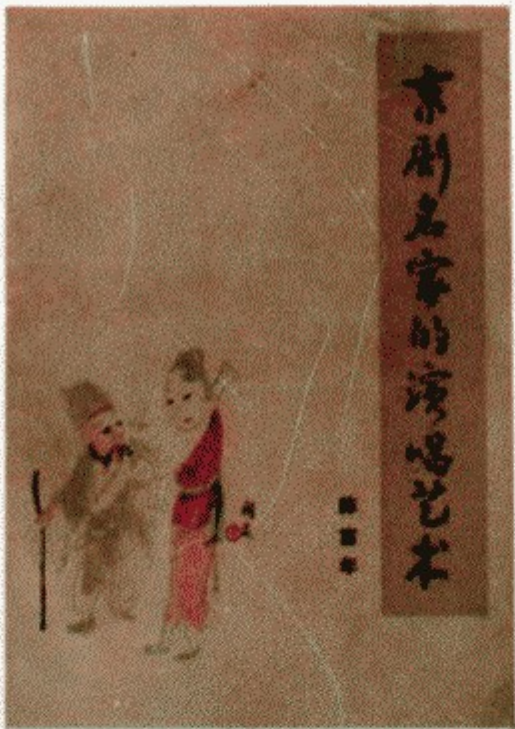 京剧名家的演唱艺术